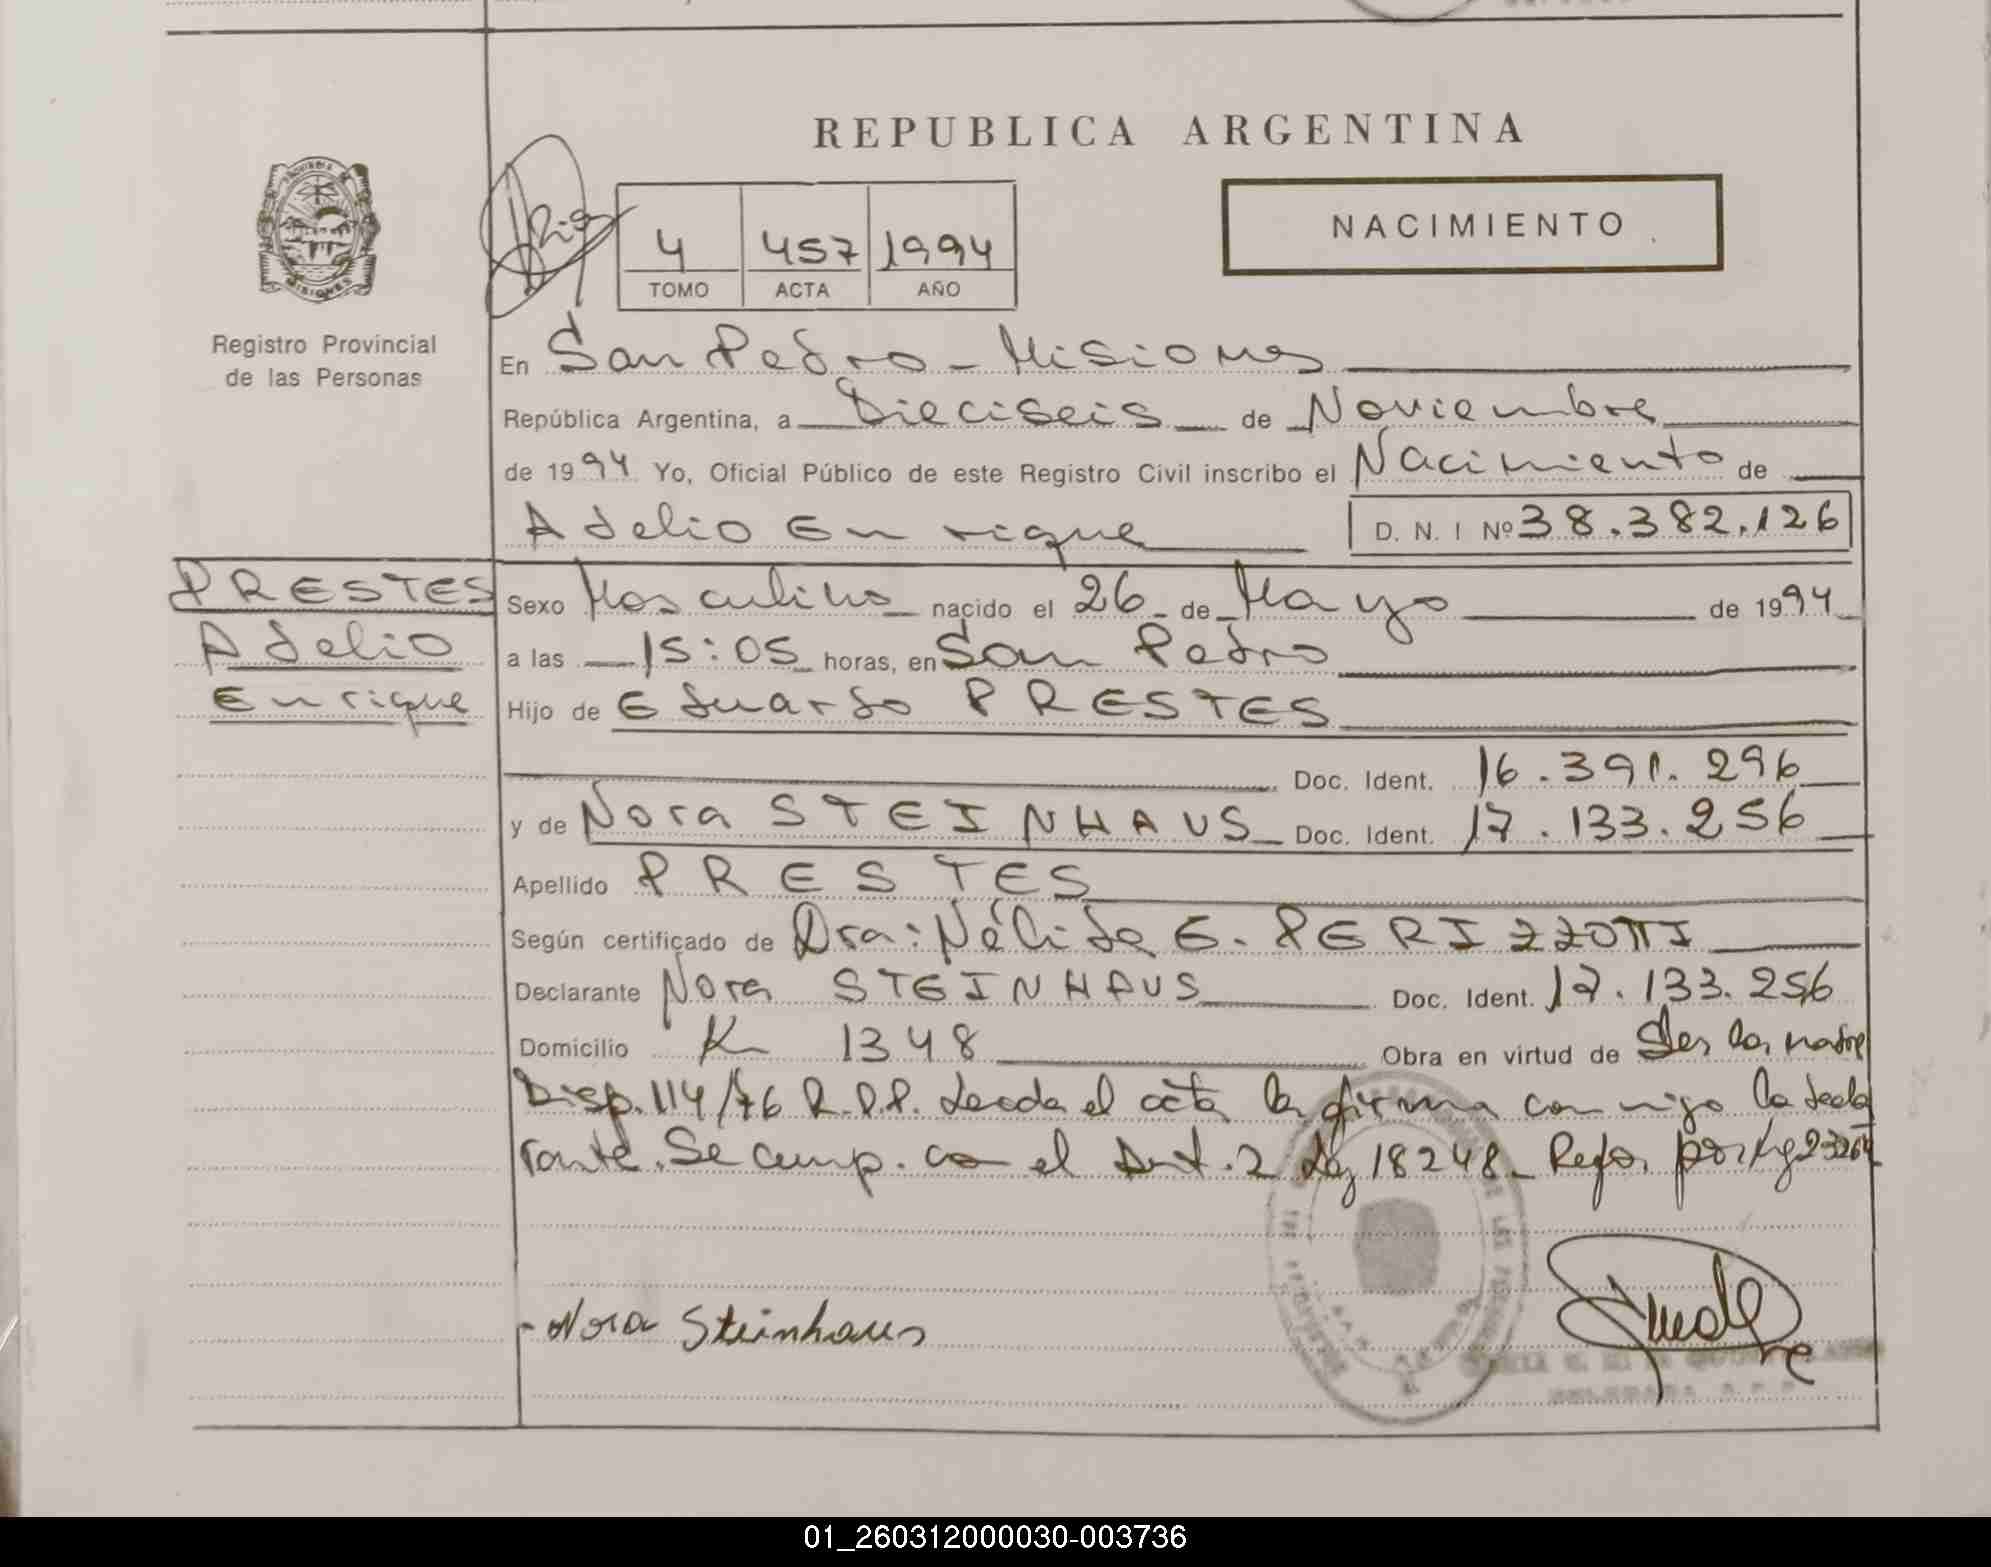 REPUBLICA ARGENTINA
PROVINCIA DE MISIONES
NACIMIENTO
4 457 1994
TOMO ACTA AÑO
Registro Provincial
de las Personas
En San Pedro - Misiones
República Argentina, a Dieciseis de Noviembre
de 1994 Yo, Oficial Público de este Registro Civil inscribo el Nacimiento de
Adelio Enrique D. N. I Nº 38.382.126
PRESTES
Adelio
Enrique
Sexo Masculino nacido el 26 de Mayo de 1994
a las 15:05 horas, en San Pedro
Hijo de Eduardo PRESTES
Doc. Ident. 16.391.296
y de Nora STEINHAUS Doc. Ident. 17.133.256
Apellido PRESTES
Según certificado de Dra: Nélida E. PERIZZOTTI
Declarante Nora STEINHAUS Doc. Ident. 17.133.256
Domicilio K 1348 Obra en virtud de Ser la madre
Disp. 114/76 R.P.P. Leeda el acta la firma con migo la decla
rante. Se cump. con el Art. 2 Ley 18248 - Refor por Ley 23264
Nora Steinhaus
01_260312000030-003736